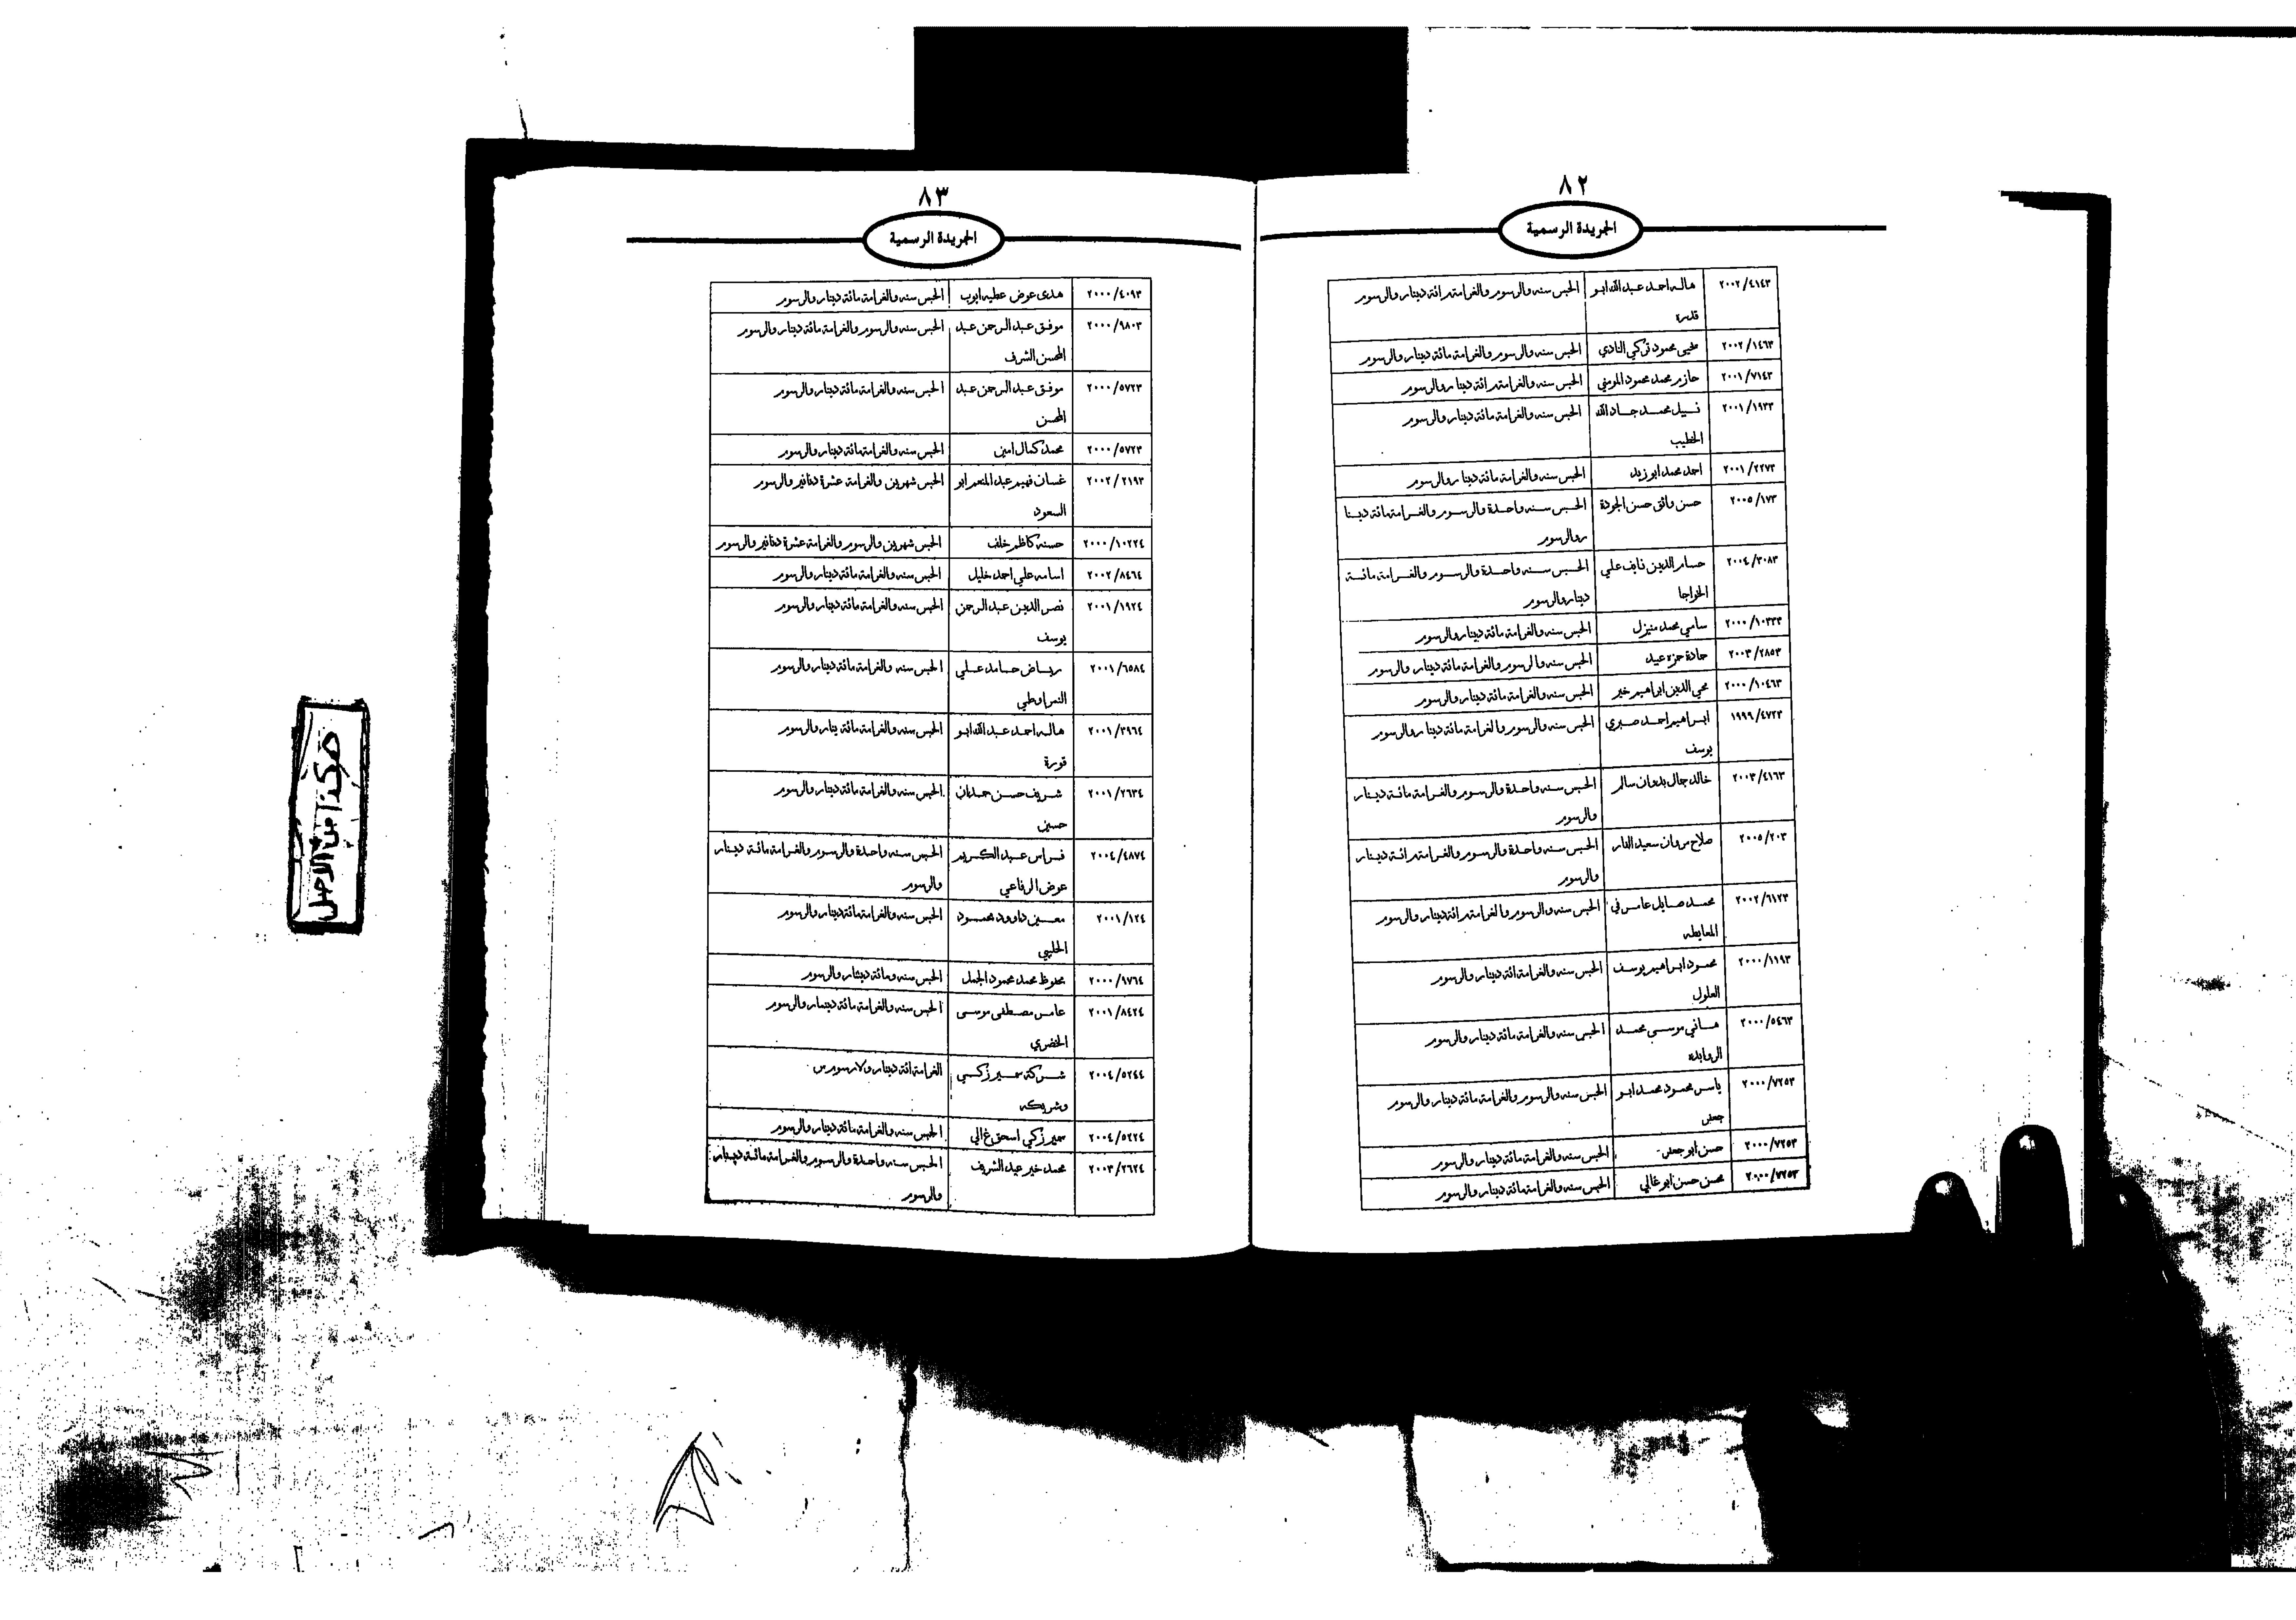 ٨٢
الجريدة الرسمية
٢٠٠٢/٤١٤٣ هاله احمد عبدالله ابو الحبس سنه والرسوم والغرامة مائة دينار والرسوم
قلدرة
٢٠٠٢/١٤٦٣ محمود تركي النادي الحبس سنه والرسوم والغرامة مائة دينار والرسوم
٢٠٠١/٧١٤٣ حازم محمد محمود المومني الحبس سنه والغرامة مائة دينار والرسوم
٢٠٠١/١٩٣٣ نبيل محمد جاد الله الحبس سنه والغرامة مائة دينار والرسوم
الخطيب
٢٠٠١/٢٢٧٣ احمد محمد ابو زيد الحبس سنه والغرامة مائة دينا روالرسوم
٢٠٠٥/١٧٣ حسن واثق حسن الجودة الحبس سنه واحدة والرسوم والغرامة مائة دينا
روالرسوم
٢٠٠٤/٣٠٨٣ حسام الدين نايف علي الحبس سنه واحدة والرسوم والغرامة مائة
الخواجا دينار والرسوم
٢٠٠٠/١٠٣٣٣ سامي محمد منيزل الحبس سنه والغرامة مائة دينار والرسوم
٢٠٠٣/٢٨٥٣ حمادة حمزه عبيد الحبس سنه والرسوم والغرامة مائة دينار والرسوم
٢٠٠٠/١٠٤٦٣ محي الدين ابراهيم خير الحبس سنه والغرامة مائة دينار والرسوم
١٩٩٩/٤٧٢٣ ابراهيم احمد صبري الحبس سنه والرسوم والغرامة مائة دينا روالرسوم
يوسف
٢٠٠٣/٤١٦٣ خالد جمال بدوان سالم الحبس سنه واحدة والرسوم والغرامة مائة دينار
والرسوم
٢٠٠٥/٢٠٣ صلاح مروان سعيد النار الحبس سنه واحدة والرسوم والغرامة مائة دينار
والرسوم
٢٠٠٢/٦١٢٣ محمد صايل عامر في الحبس سنه والرسوم والغرامة مائة دينار والرسوم
المعايطه
٢٠٠٠/١١٩٣ محمود ابراهيم يوسف الحبس سنه والغرامة مائة دينار والرسوم
العلول
٢٠٠٠/٥٤٦٣ هاني موسى محمد الحبس سنه والغرامة مائة دينار والرسوم
الروابده
٢٠٠٠/٧٢٥٣ ياسر محمود محمد ابو الحبس سنه والرسوم والغرامة مائة دينار والرسوم
جعفر
٢٠٠٠/٧٢٥٣ حسن ابو جعفر الحبس سنه والغرامة مائة دينار والرسوم
٢٠٠٠/٧٢٥٣ محسن حسن ابو غالي الحبس سنه والغرامة مائة دينار والرسوم
٨٣
الجريدة الرسمية
٢٠٠٠/٤٠٩٣ هدى عوض عطيه ايوب الحبس سنه والغرامة مائة دينار والرسوم
٢٠٠٠/٩٨٠٣ موفق عبد الرحمن عبد الحبس سنه والرسوم والغرامة مائة دينار والرسوم
المحسن الشرف
٢٠٠٠/٥٧٢٣ موفق عبد الرحمن عبد الحبس سنه والغرامة مائة دينار والرسوم
المحسن
٢٠٠٠/٥٧٢٣ محمد كمال امين الحبس سنه والغرامة مائة دينار والرسوم
٢٠٠٢/٢١٩٣ غسان فهيم عبد المنعم ابو الحبس شهرين والغرامة عشرة دنانير والرسوم
السعود
٢٠٠٠/١٠٢٢٤ حسنه كاظم خلف الحبس شهرين والرسوم والغرامة عشرة دنانير والرسوم
٢٠٠٢/٨٤٦٤ اسامه علي احمد خليل الحبس سنه والغرامة مائة دينار والرسوم
٢٠٠١/١٩٢٤ نصر الدين عبد الرحمن الحبس سنه والغرامة مائة دينار والرسوم
يوسف
٢٠٠١/٦٥٨٤ رياض حامد علي الحبس سنه والغرامة مائة دينار والرسوم
النمراوطي
٢٠٠١/٣٩٦٤ هاله احمد عبدالله ابو الحبس سنه والغرامة مائة ينار والرسوم
قورة
٢٠٠١/٢٦٣٤ شريف حسن حمدان الحبس سنه والغرامة مائة دينار والرسوم
حسين
٢٠٠٤/٤٨٧٤ فراس عبد الكريم الحبس سنه واحدة والرسوم والغرامة مائة دينار
عوض الرفاعي والرسوم
٢٠٠١/١٢٤ معين داوود محمود الحبس سنه والغرامة مائة دينار والرسوم
الحليبي
٢٠٠٠/٩٧٦٤ محفوظ محمد محمود الجمل الحبس سنه ومائة دينار والرسوم
٢٠٠١/٨٤٢٤ عامر مصطفى موسى الحبس سنه والغرامة مائة دينار والرسوم
الخضري
٢٠٠٤/٥٢٤٤ شركة سمير زكي الغرامة مائة دينار
وشريكه
٢٠٠٤/٥٢٢٤ سمير زكي اسحق غالي الحبس سنه والغرامة مائة دينار والرسوم
٢٠٠٣/٢٦٢٤ محمد خير عيد الشريف الحبس سنه واحدة والرسوم والغرامة مائة دينار
والرسوم
هكذا من الاصل